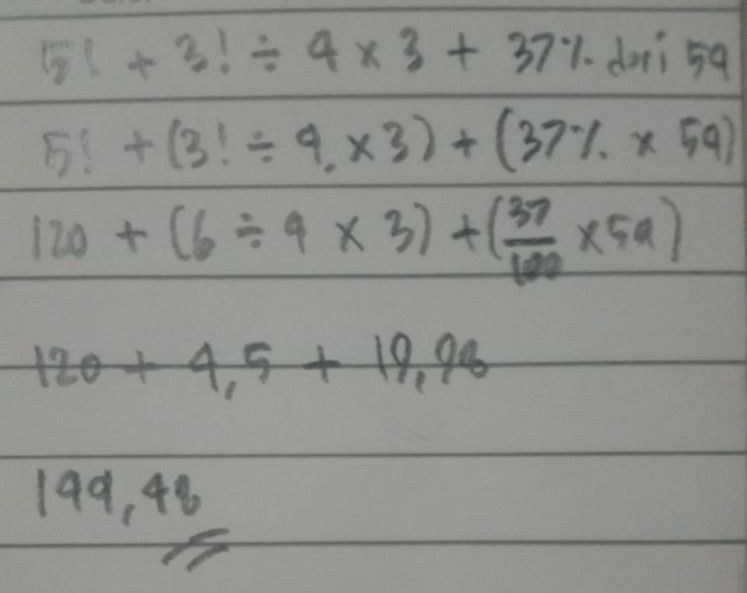 5! + 3! ÷ 4 × 3 + 37% dari 54
5! + (3! ÷ 4 × 3) + (37% × 54)
120 + (6 ÷ 4 × 3) + (37/100 × 54)
120 + 4,5 + 19,98
144,48